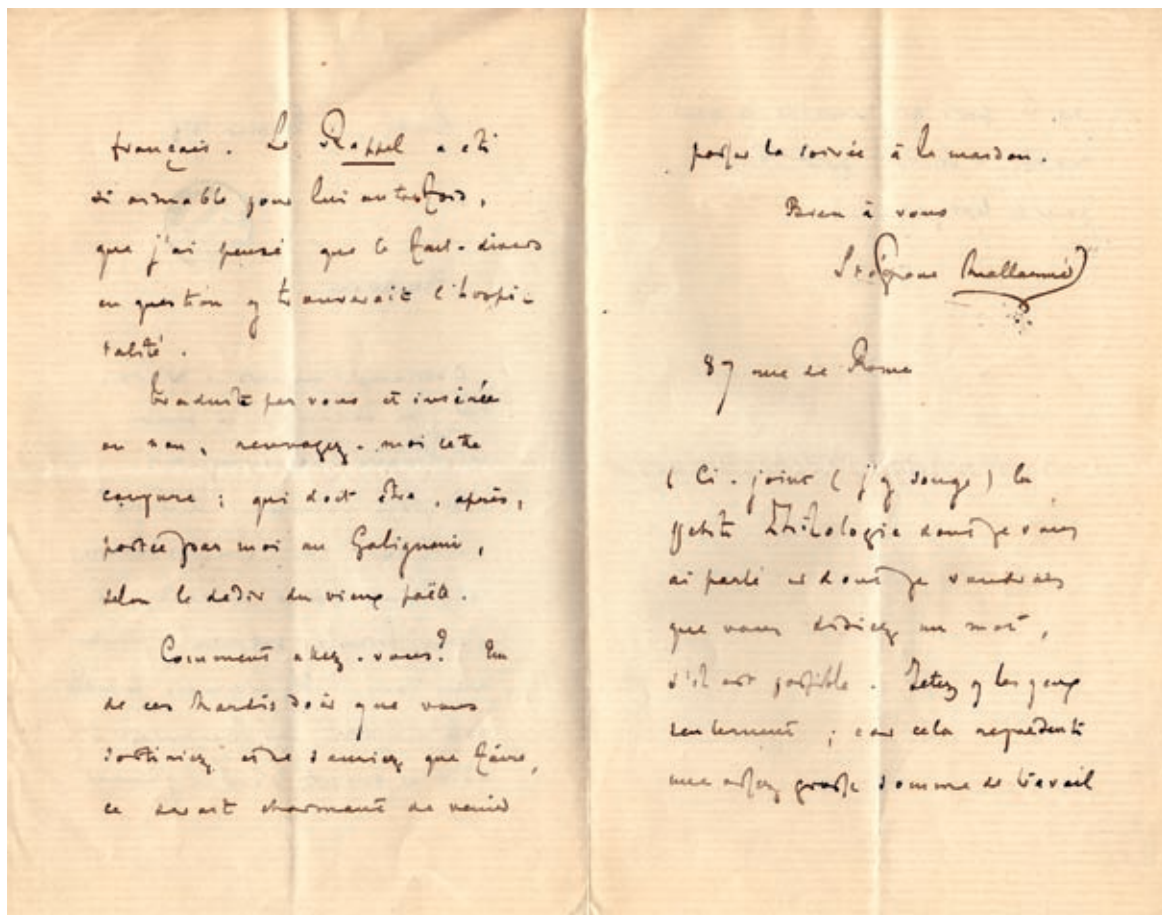 français. Le Rappel a été
si aimable pour lui autrefois,
que j'ai pensé que le fait-divers
en question y trouverait l'hospi-
talité.
Traduite par vous et insérée
ou non, renvoyez-moi cette
coupure ; qui doit être, après,
portée par moi au Galignani,
selon le désir du vieux poëte.
Comment allez-vous? Un
de ces mardis soir que vous
sortiriez et ne sauriez que faire,
ce serait charmant de venir
passer la soirée à la maison.
Bien à vous
Stéphane Mallarmé
87 rue de Rome
( Ci-joint ( j'y songe ) la
petite Philologie dont je vous
ai parlé et dont je voudrais
que vous disiez un mot,
s'il est possible. Jetez y les yeux
seulement ; car cela représente
une assez grosse somme de travail